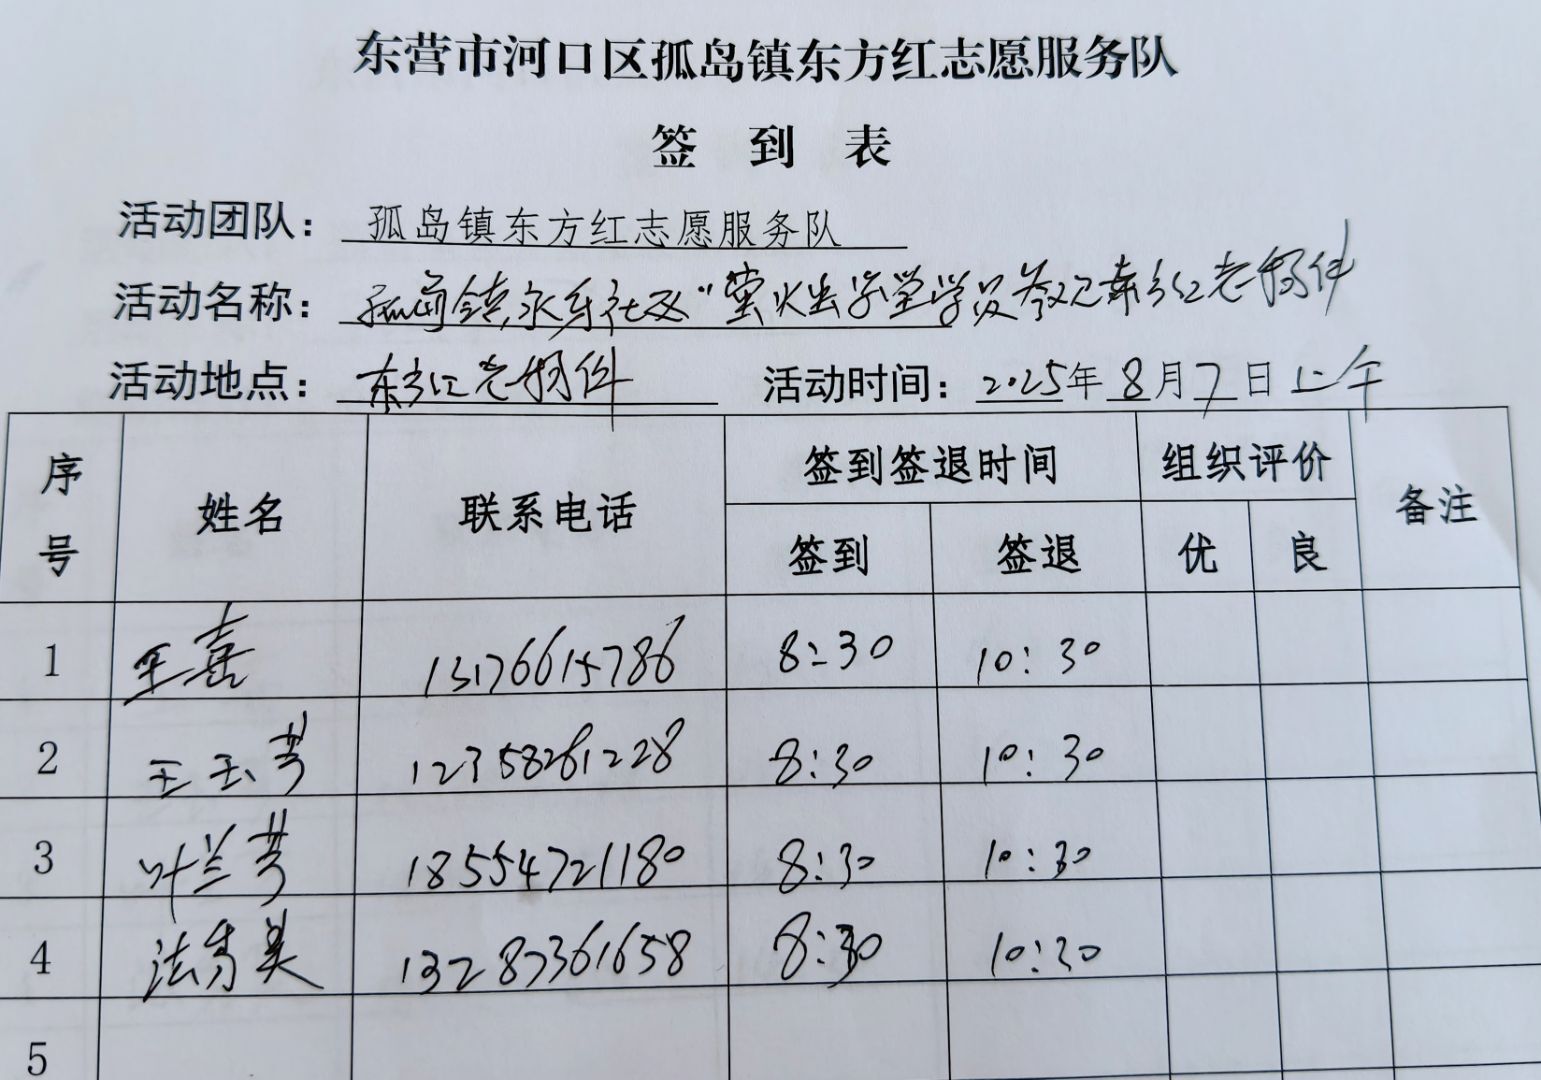 东营市河口区孤岛镇东方红志愿服务队
签 到 表
活动团队： 孤岛镇东方红志愿服务队
活动名称： 孤岛镇永乐社区“萤火虫学堂学员参观东方红老物件
活动地点： 东方红老物件 活动时间：2025年8月7日上午
序号 姓名 联系电话 签到签退时间 组织评价 备注
签到 签退 优 良
1 王嘉 13176615786 8:30 10:30
2 王玉芳 12358261228 8:30 10:30
3 叶兰芳 18554721180 8:30 10:30
4 法秀美 13287361658 8:30 10:30
5